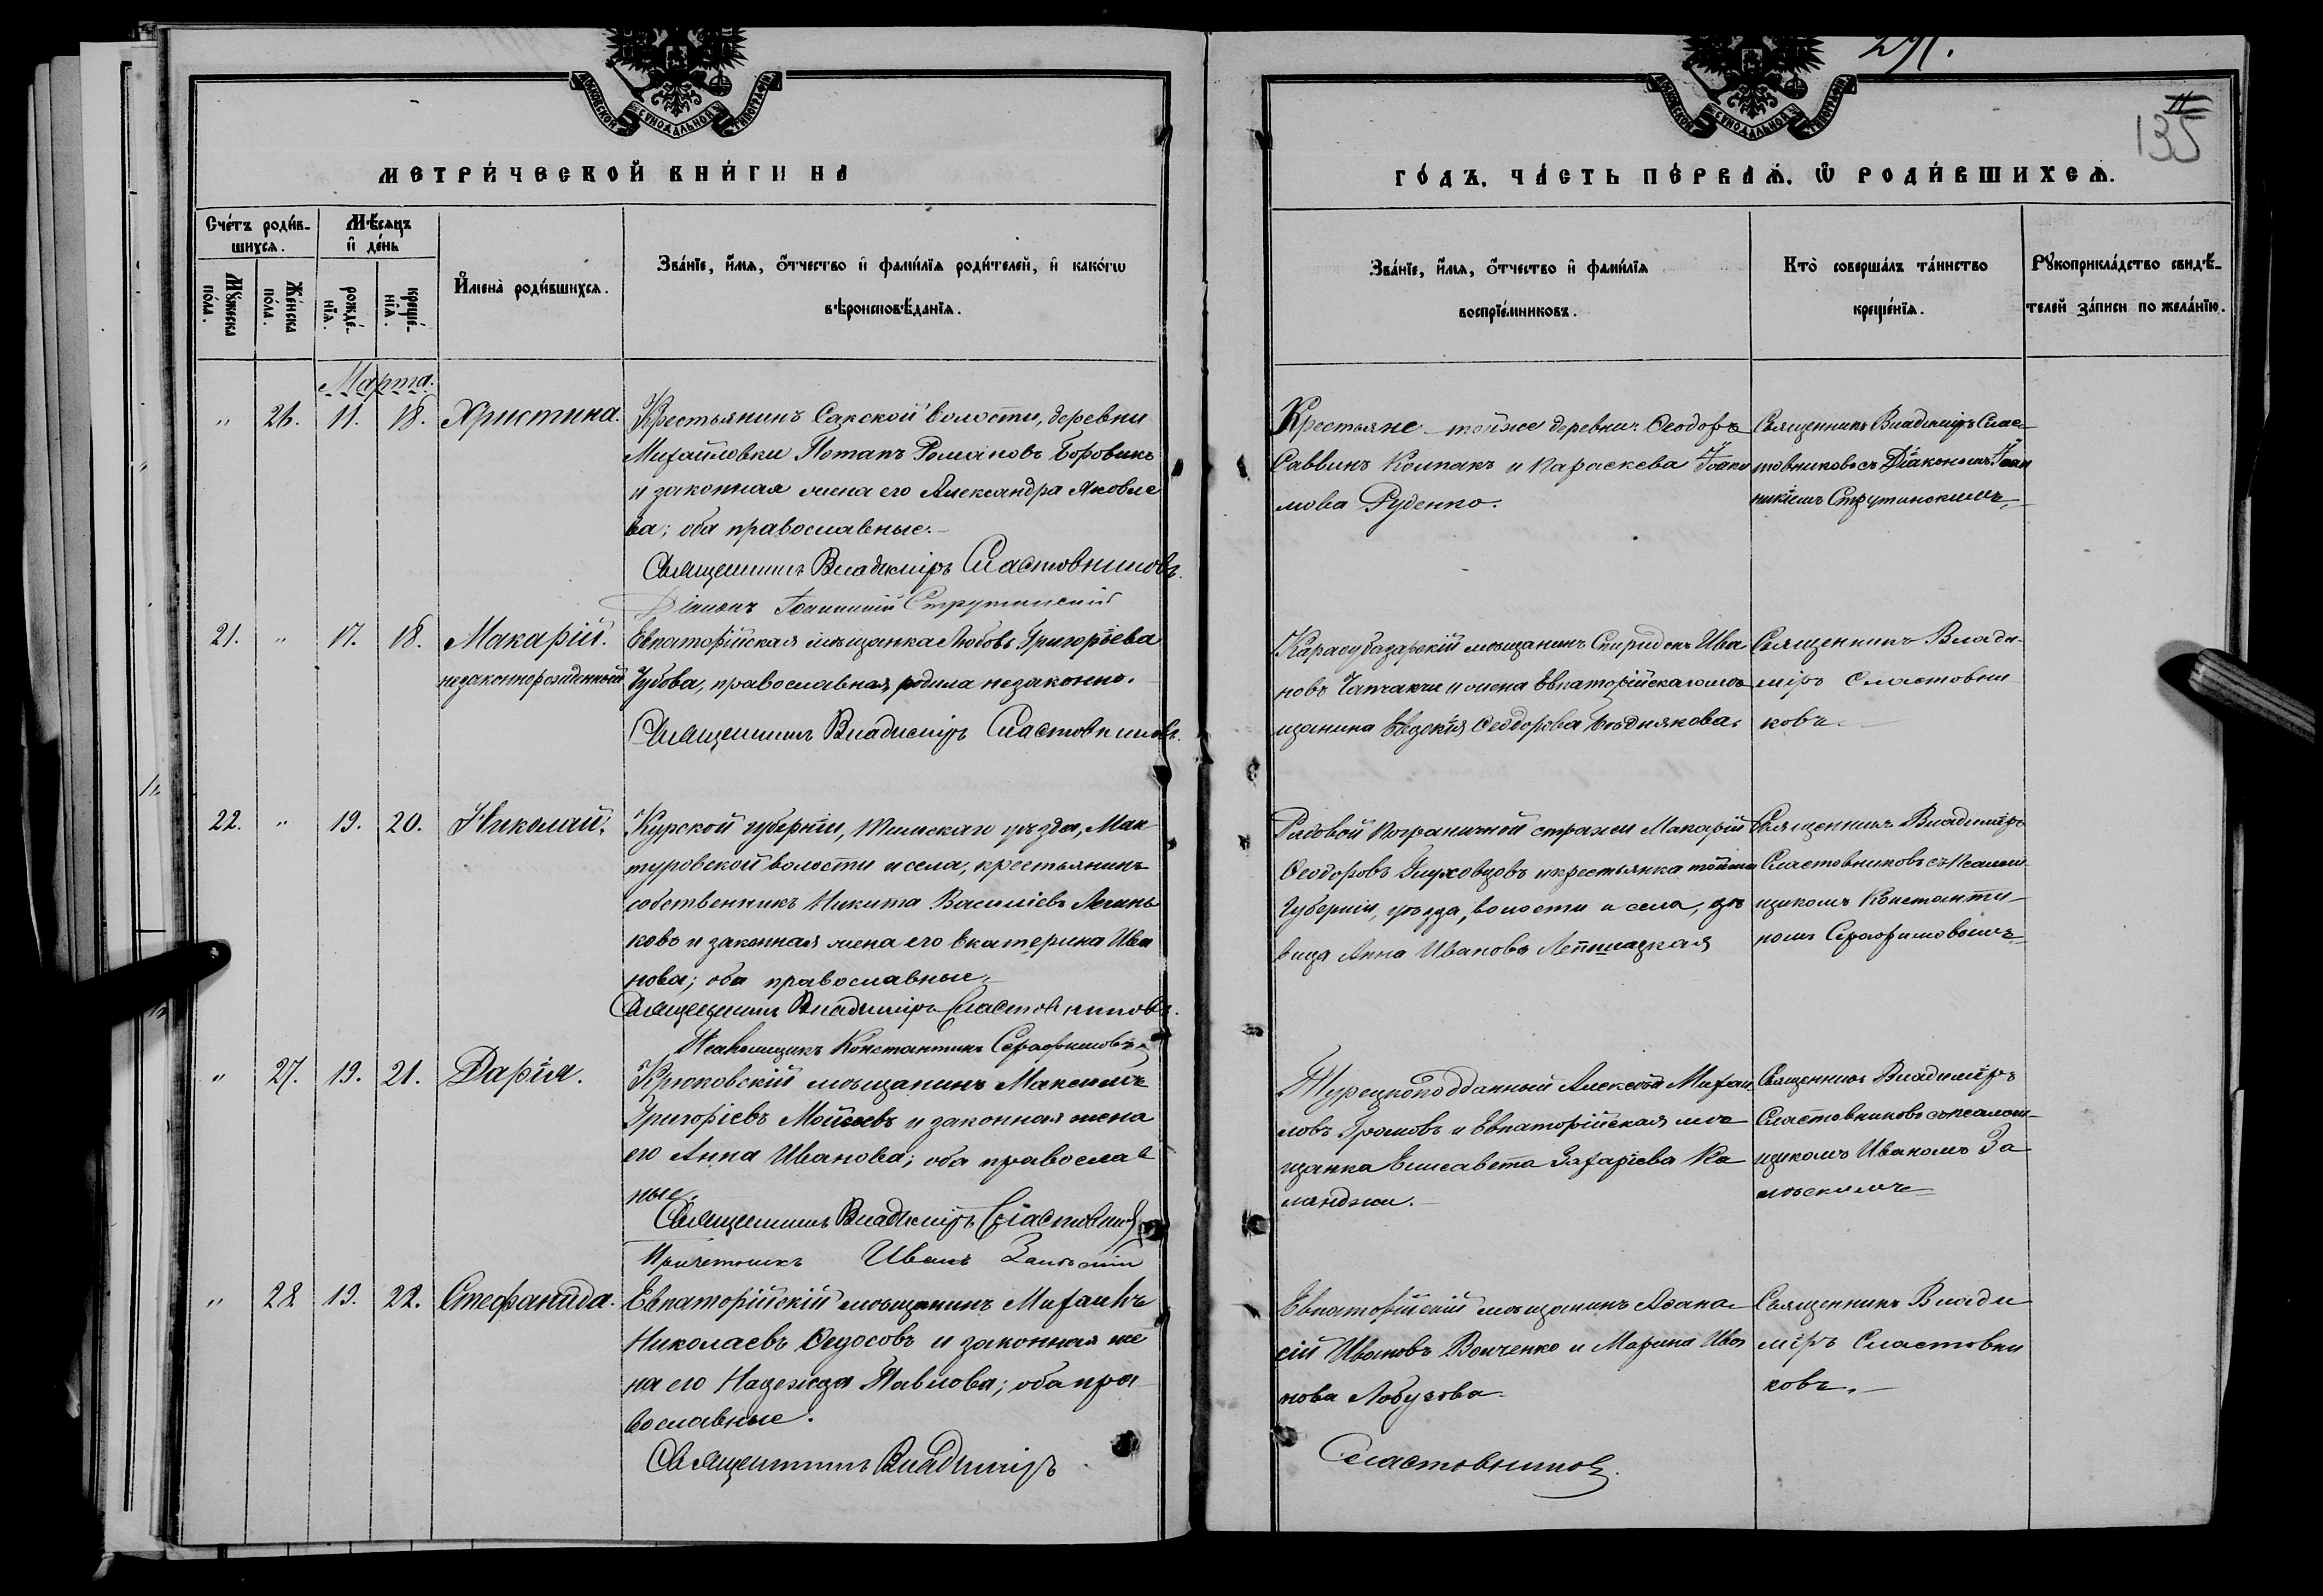 291.
11
135
МЕТРИ́ЧЕСКОЙ КНИ́ГИ НА
ГО́ДЪ, ЧА́СТЬ ПЕ́РВАѦ, Ѡ РОДИ́ВШИХСѦ.
Сче́тъ роди́в-
шихсѧ.
Мꙋ́жеска по́ла.
Же́нска по́ла.
Мѣ́сѧцъ
и де́нь
рожде́-
нїѧ.
креще́-
нїѧ.
Имена̀ роди́вшихсѧ.
Зва́нїе, и́мѧ, о́тчество и фами́лїѧ роди́телей, и како́гѡ
вѣроисповѣ́данїѧ.
Зва́нїе, и́мѧ, о́тчество и фами́лїѧ
воспрїе́мниковъ.
Кто̀ соверша́лъ та́инство
креще́нїѧ.
Рꙋкоприкла́дство свидѣ́-
телей за́писи по жела́нїю.
Марта.
" 26. 11. 18. Христина. Крестьянинъ Сакской волости, деревни
Михайловки Потапъ Романовъ Боровикъ
и законная жена его Александра Яковле
ва; оба православные.
Священникъ Владиміръ Сластовниковъ.
Діаконъ Іоанникій Струтинскій
Крестьяне тойже деревни Ѳеодоръ
Саввинъ Колпакъ и Параскева Іоаки
мова Руденко.
Священникъ Владиміръ Слас-
товниковъ съ Діакономъ Іоан
никіемъ Струтинскимъ
21. " 17. 18. Макарій. Евпаторійская мѣщанка Любовь Григорьева
незаконнорожденный Чубова, православная, родила незаконно.
Священникъ Владиміръ Сластовниковъ.
Карасубазарскій мѣщанинъ Спиридонъ Ива
новъ Чапчакчи и жена Евпаторійскаго мѣ
щанина Евдокія Ѳеодорова Позднякова.
Священникъ Влади-
міръ Сластовни
ковъ.
22. " 19. 20. Николай. Курской губерніи, Тимскаго уѣзда, Ман
туровской волости и села, крестьянинъ
собственникъ Никита Василіевъ Лень
ковъ и законная жена его Екатерина Ива
нова; оба православные.
Священникъ Владиміръ Сластовниковъ.
Псаломщикъ Константинъ Серафимовъ
Рядовой пограничной стражи Макарій
Ѳеодоровъ Глуховцовъ и крестьянка тойже
губерніи, уѣзда, волости и села, дѣ
вица Анна Иванова
Священникъ Владиміръ
Сластовниковъ съ псалом-
щикомъ Константи-
номъ Серафимовымъ
" 27. 19. 21. Дарія. Крюковскій мѣщанинъ Максимъ
Григоріевъ Мойсеевъ и законная жена
его Анна Иванова; оба православ
ные.
Священникъ Владиміръ Сластовниковъ
Причетникъ Иванъ Замѣскій
Турецкоподданный Алексѣй Михаи
ловъ Громовъ и Евпаторійская мѣ
щанка Елисавета Захаріева Ка
ланджи.
Священникъ Владиміръ
Сластовниковъ съ псалом-
щикомъ Иваномъ За
мѣскимъ
" 28 19. 22. Стефанида. Евпаторійскій мѣщанинъ Михаилъ
Николаевъ Ѳедосовъ и законная же
на его Надежда Павлова; оба пра
вославные.
Священникъ Владиміръ
Евпаторійскій мѣщанинъ Аѳана
сій Ивановъ Волченко и Марина Ива
нова Лобузова
Сластовниковъ.
Священникъ Влади
міръ Сластовни
ковъ.